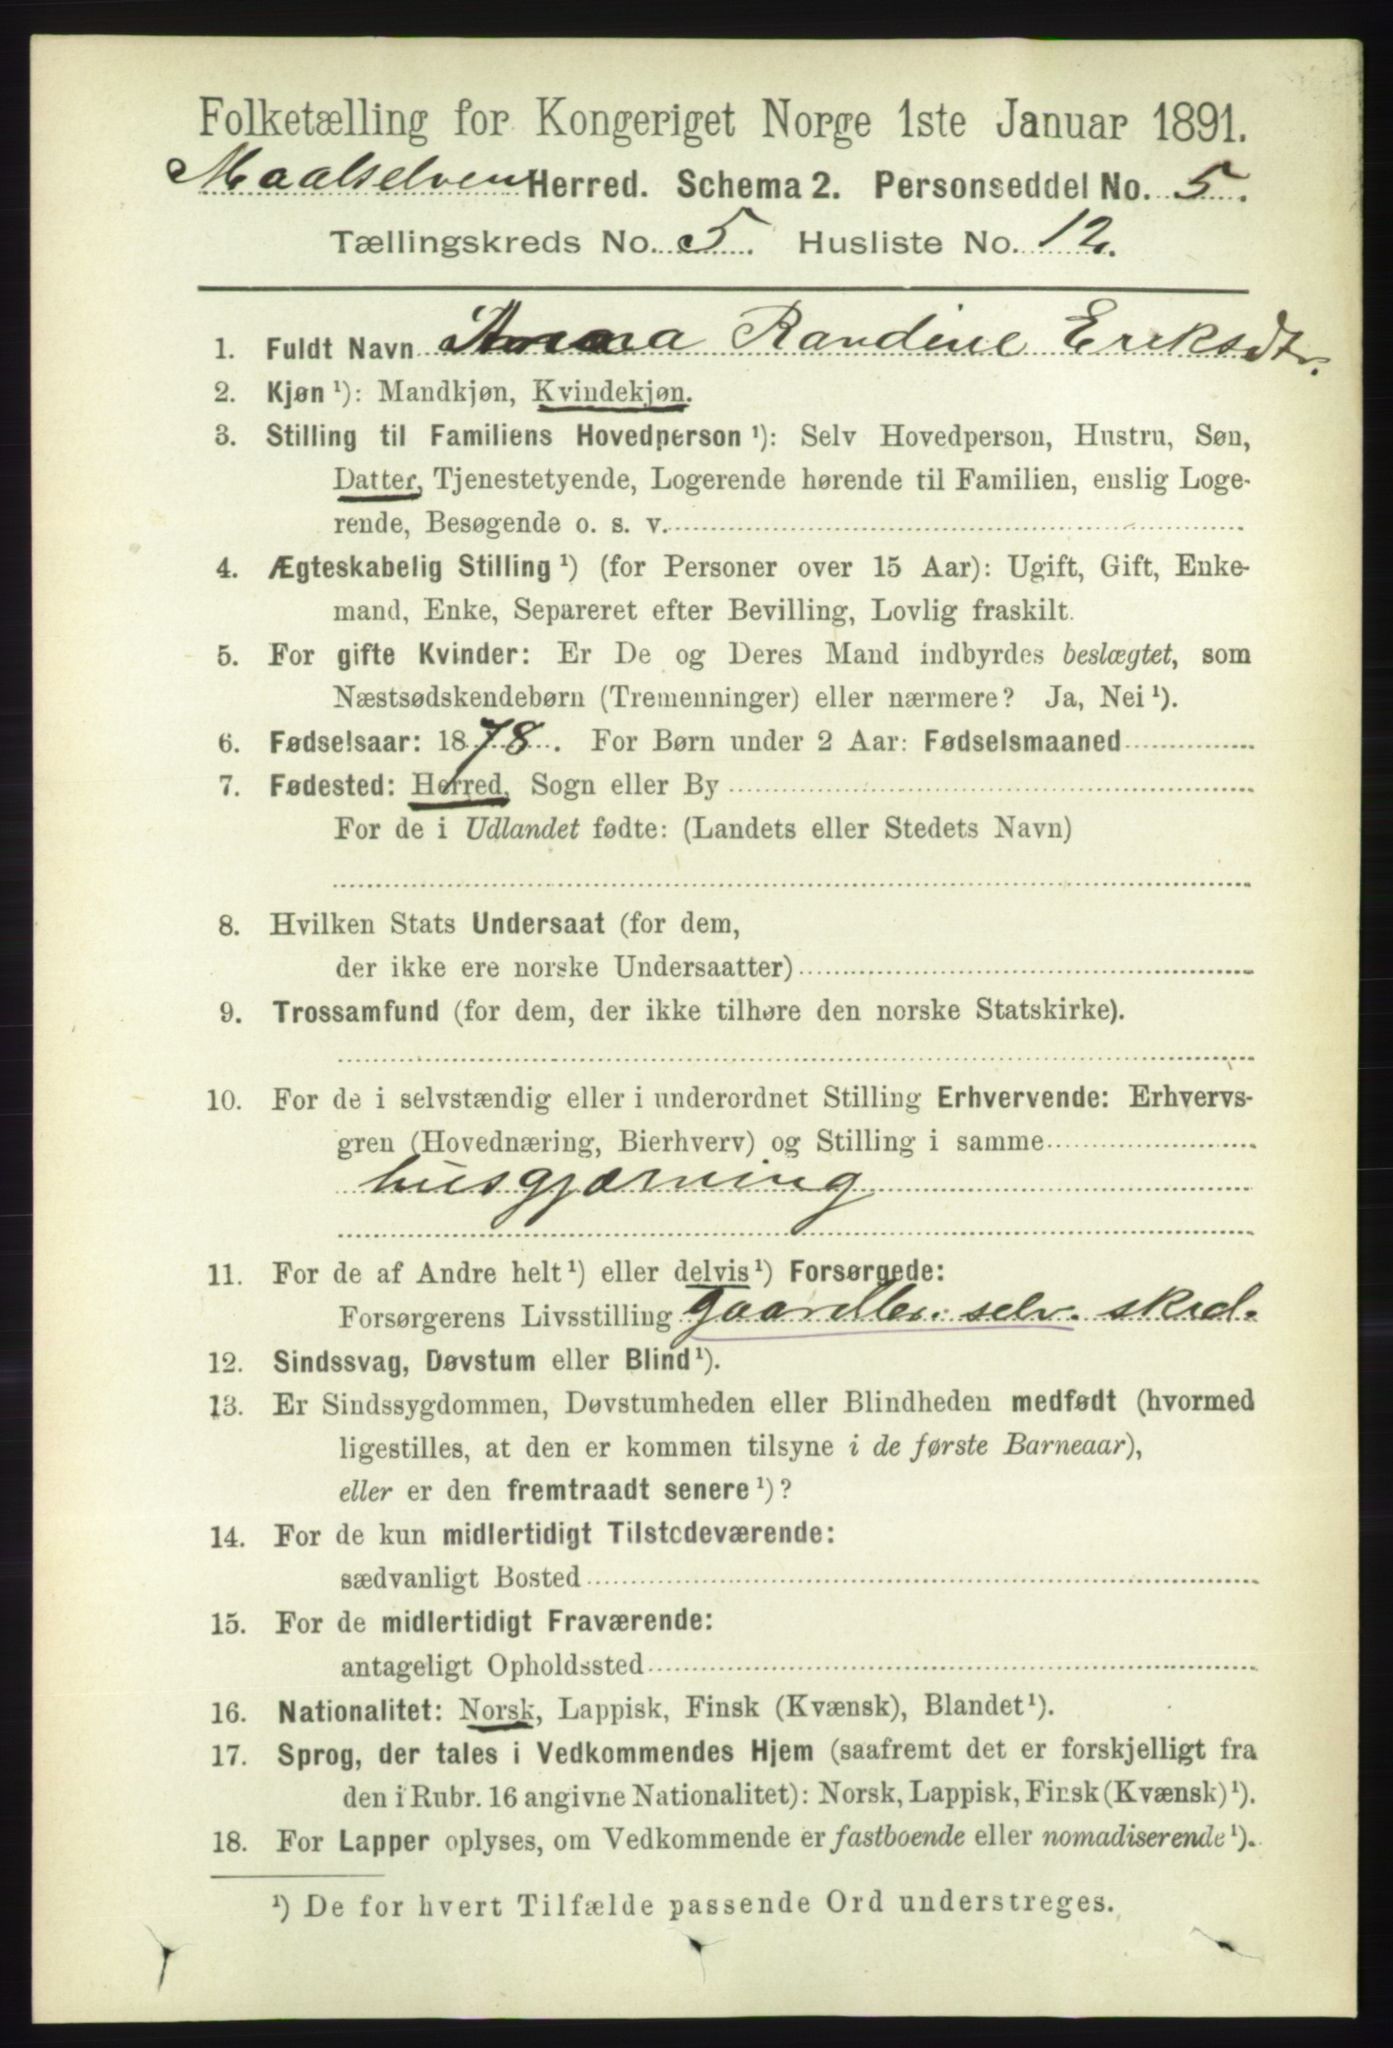 Folketælling for Kongeriget Norge 1ste Januar 1891.
Maalselven Herred. Schema 2. Personseddel No. 5.
Tællingskreds No. 5. Husliste No. 12.
1. Fuldt Navn Anna Randine Eriksdtr.
2. Kjøn ¹): Mandkjøn, Kvindekjøn.
3. Stilling til Familiens Hovedperson ¹): Selv Hovedperson, Hustru, Søn,
Datter, Tjenestetyende, Logerende hørende til Familien, enslig Loge-
rende, Besøgende o. s. v.
4. Ægteskabelig Stilling ¹) (for Personer over 15 Aar): Ugift, Gift, Enke-
mand, Enke, Separeret efter Bevilling, Lovlig fraskilt.
5. For gifte Kvinder: Er De og Deres Mand indbyrdes beslægtet, som
Næstsødskendebørn (Tremenninger) eller nærmere? Ja, Nei ¹).
6. Fødselsaar: 1878. For Børn under 2 Aar: Fødselsmaaned
7. Fødested: Herred, Sogn eller By
For de i Udlandet fødte: (Landets eller Stedets Navn)
8. Hvilken Stats Undersaat (for dem,
der ikke ere norske Undersaatter)
9. Trossamfund (for dem, der ikke tilhøre den norske Statskirke).
10. For de i selvstændig eller i underordnet Stilling Erhvervende: Erhvervs-
gren (Hovednæring, Bierhverv) og Stilling i samme
husgjærning
11. For de af Andre helt ¹) eller delvis ¹) Forsørgede:
Forsørgerens Livsstilling gaardbr. selv. skrd.
12. Sindssvag, Døvstum eller Blind ¹).
13. Er Sindssygdommen, Døvstumheden eller Blindheden medfødt (hvormed
ligestilles, at den er kommen tilsyne i de første Barneaar),
eller er den fremtraadt senere ¹)?
14. For de kun midlertidigt Tilstedeværende:
sædvanligt Bosted
15. For de midlertidigt Fraværende:
antageligt Opholdssted
16. Nationalitet: Norsk, Lappisk, Finsk (Kvænsk), Blandet ¹).
17. Sprog, der tales i Vedkommendes Hjem (saafremt det er forskjelligt fra
den i Rubr. 16 angivne Nationalitet): Norsk, Lappisk, Finsk (Kvænsk) ¹).
18. For Lapper oplyses, om Vedkommende er fastboende eller nomadiserende ¹).
¹) De for hvert Tilfælde passende Ord understreges.